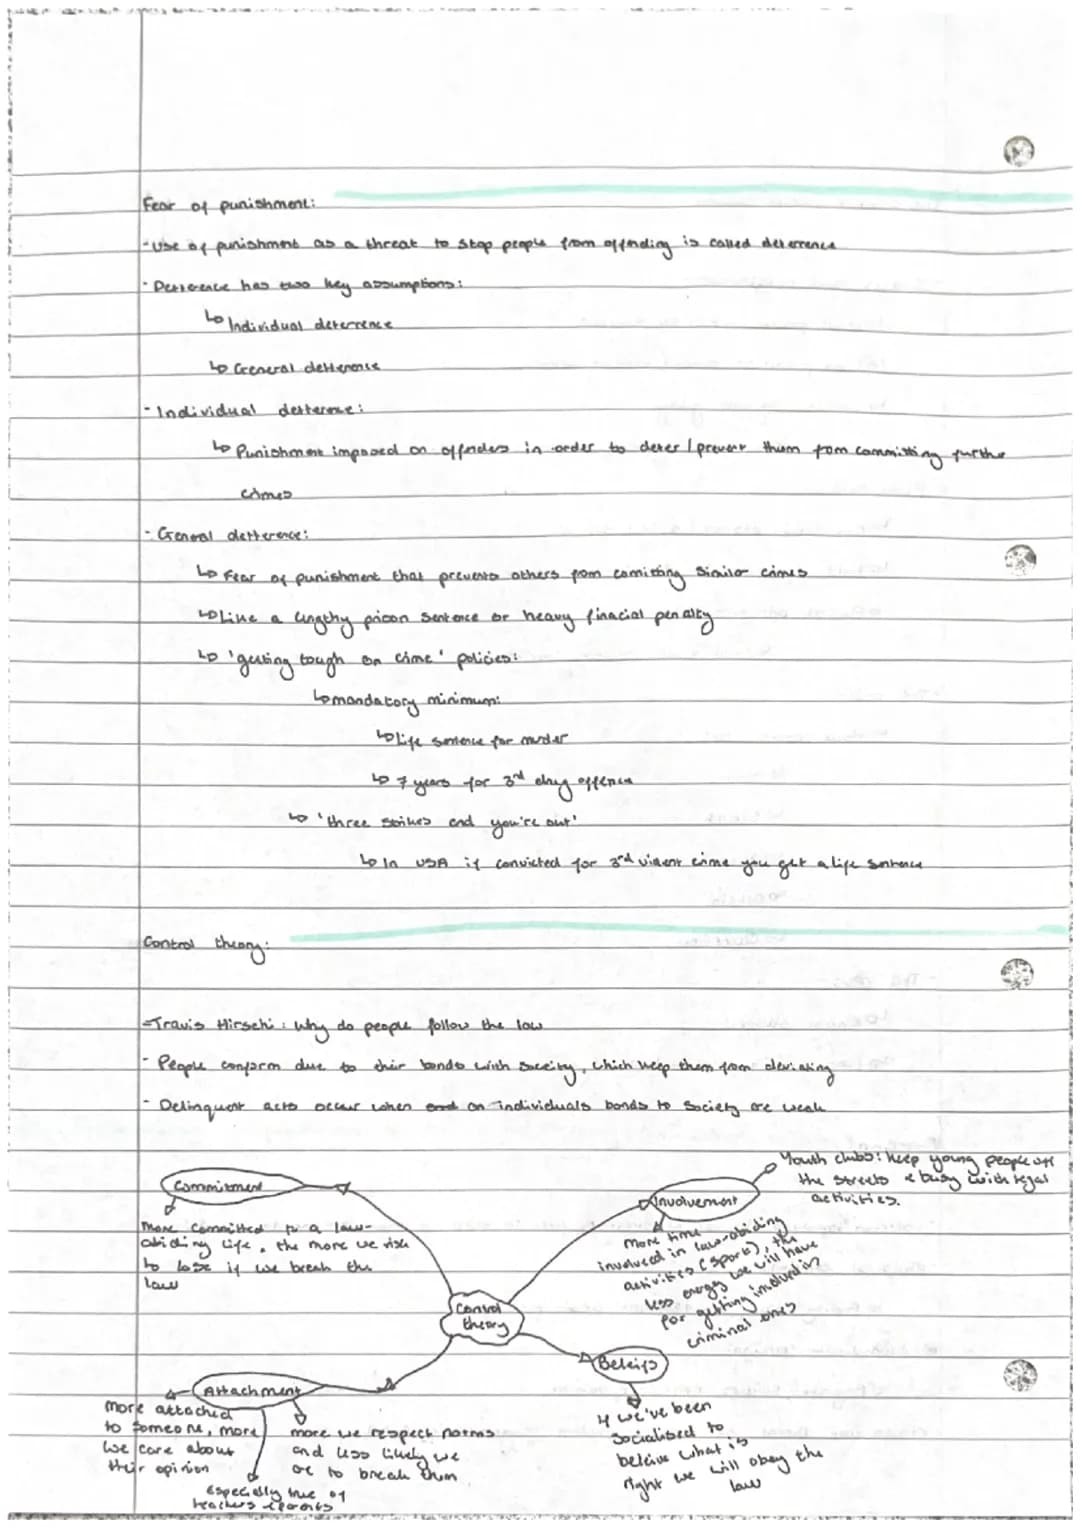 Fear of punishment:
- Use of punishment as a threat to stop people from offending is called deterrence
- Deterrence has two key assumptions:
↳ Individual deterrence
↳ General detterence
- Individual detterence:
↳ Punishment imposed on offenders in order to deter / prevent them from committing further
crimes
- General detterence:
↳ Fear of punishment that prevents others from comitting similar crimes
↳ Like a lengthy prison sentence or heavy finacial penalty
↳ 'getting tough on crime' policies:
↳ mandatory minimum:
↳ Life sentence for murder
↳ 7 years for 3rd drug offence
↳ 'three strikes and you're out'
↳ In USA if convicted for 3rd violent crime you get a life sentence
Control theory:
- Travis Hirschi: Why do people follow the law
- People conform due to their bonds with soceity, which keep them from deviating
- Delinquent acts occur when an individuals bonds to society are weak
Commitment
More committed to a law-
abiding life, the more we risk
to lose if we break the
law
Involvement
Youth clubs: keep young people off
the streets & busy with legal
activities.
More time
involved in law-abiding
activities (sports), the
less energy we will have
for getting involved in
criminal ones
Control
theory
Beleifs
If we've been
socialised to
beleive what is
right we will obey the
law
Attachment
More attached
to someone, more
we care about
their opinion
more we respect norms
and less likely we
are to break them
Especially true of
teachers & parents